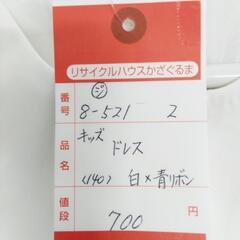 リサイクルハウスかざぐるま
番号 8-521 2
品名 キッズ ドレス
(140) 白×青リボン
値段 700 円